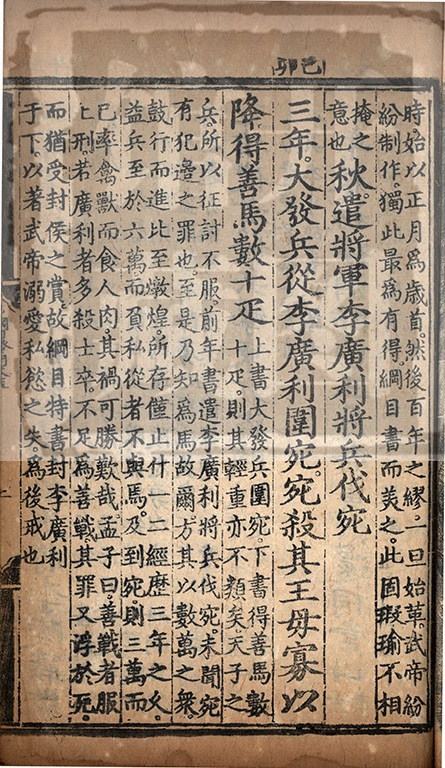 己卯
時始以正月為歲首。然後百年之繆。一旦始革。武帝紛
紛制作。獨此最為有得。綱目書而美之。此固瑕瑜不相
掩之
意也
秋。遣將軍李廣利將兵伐宛
三年。大發兵從李廣利圍宛。宛殺其王毋寡以
降得善馬數十疋
上書大發兵圍宛。下書得善馬數
十疋。則其輕重亦不類矣。天子之
兵所以征討不服。前年書遣李廣利將兵伐宛。未聞宛
有犯邊之罪也。至是乃知為馬故爾。方其以數萬之衆。
鼓行而進。比至燉煌。所存僅止什一二。經歷三年之久。
益兵至於六萬。而負私從者不與焉。及到宛則三萬而
已。率禽獸而食人肉。其禍可勝歎哉。孟子曰。善戰者服
上刑。若廣利者多殺士卒。不足為善戰。其罪又浮於死。
而猶受封侯之賞。故綱目特書封李廣利
于下。以著武帝溺愛私慾之失。為後戒也